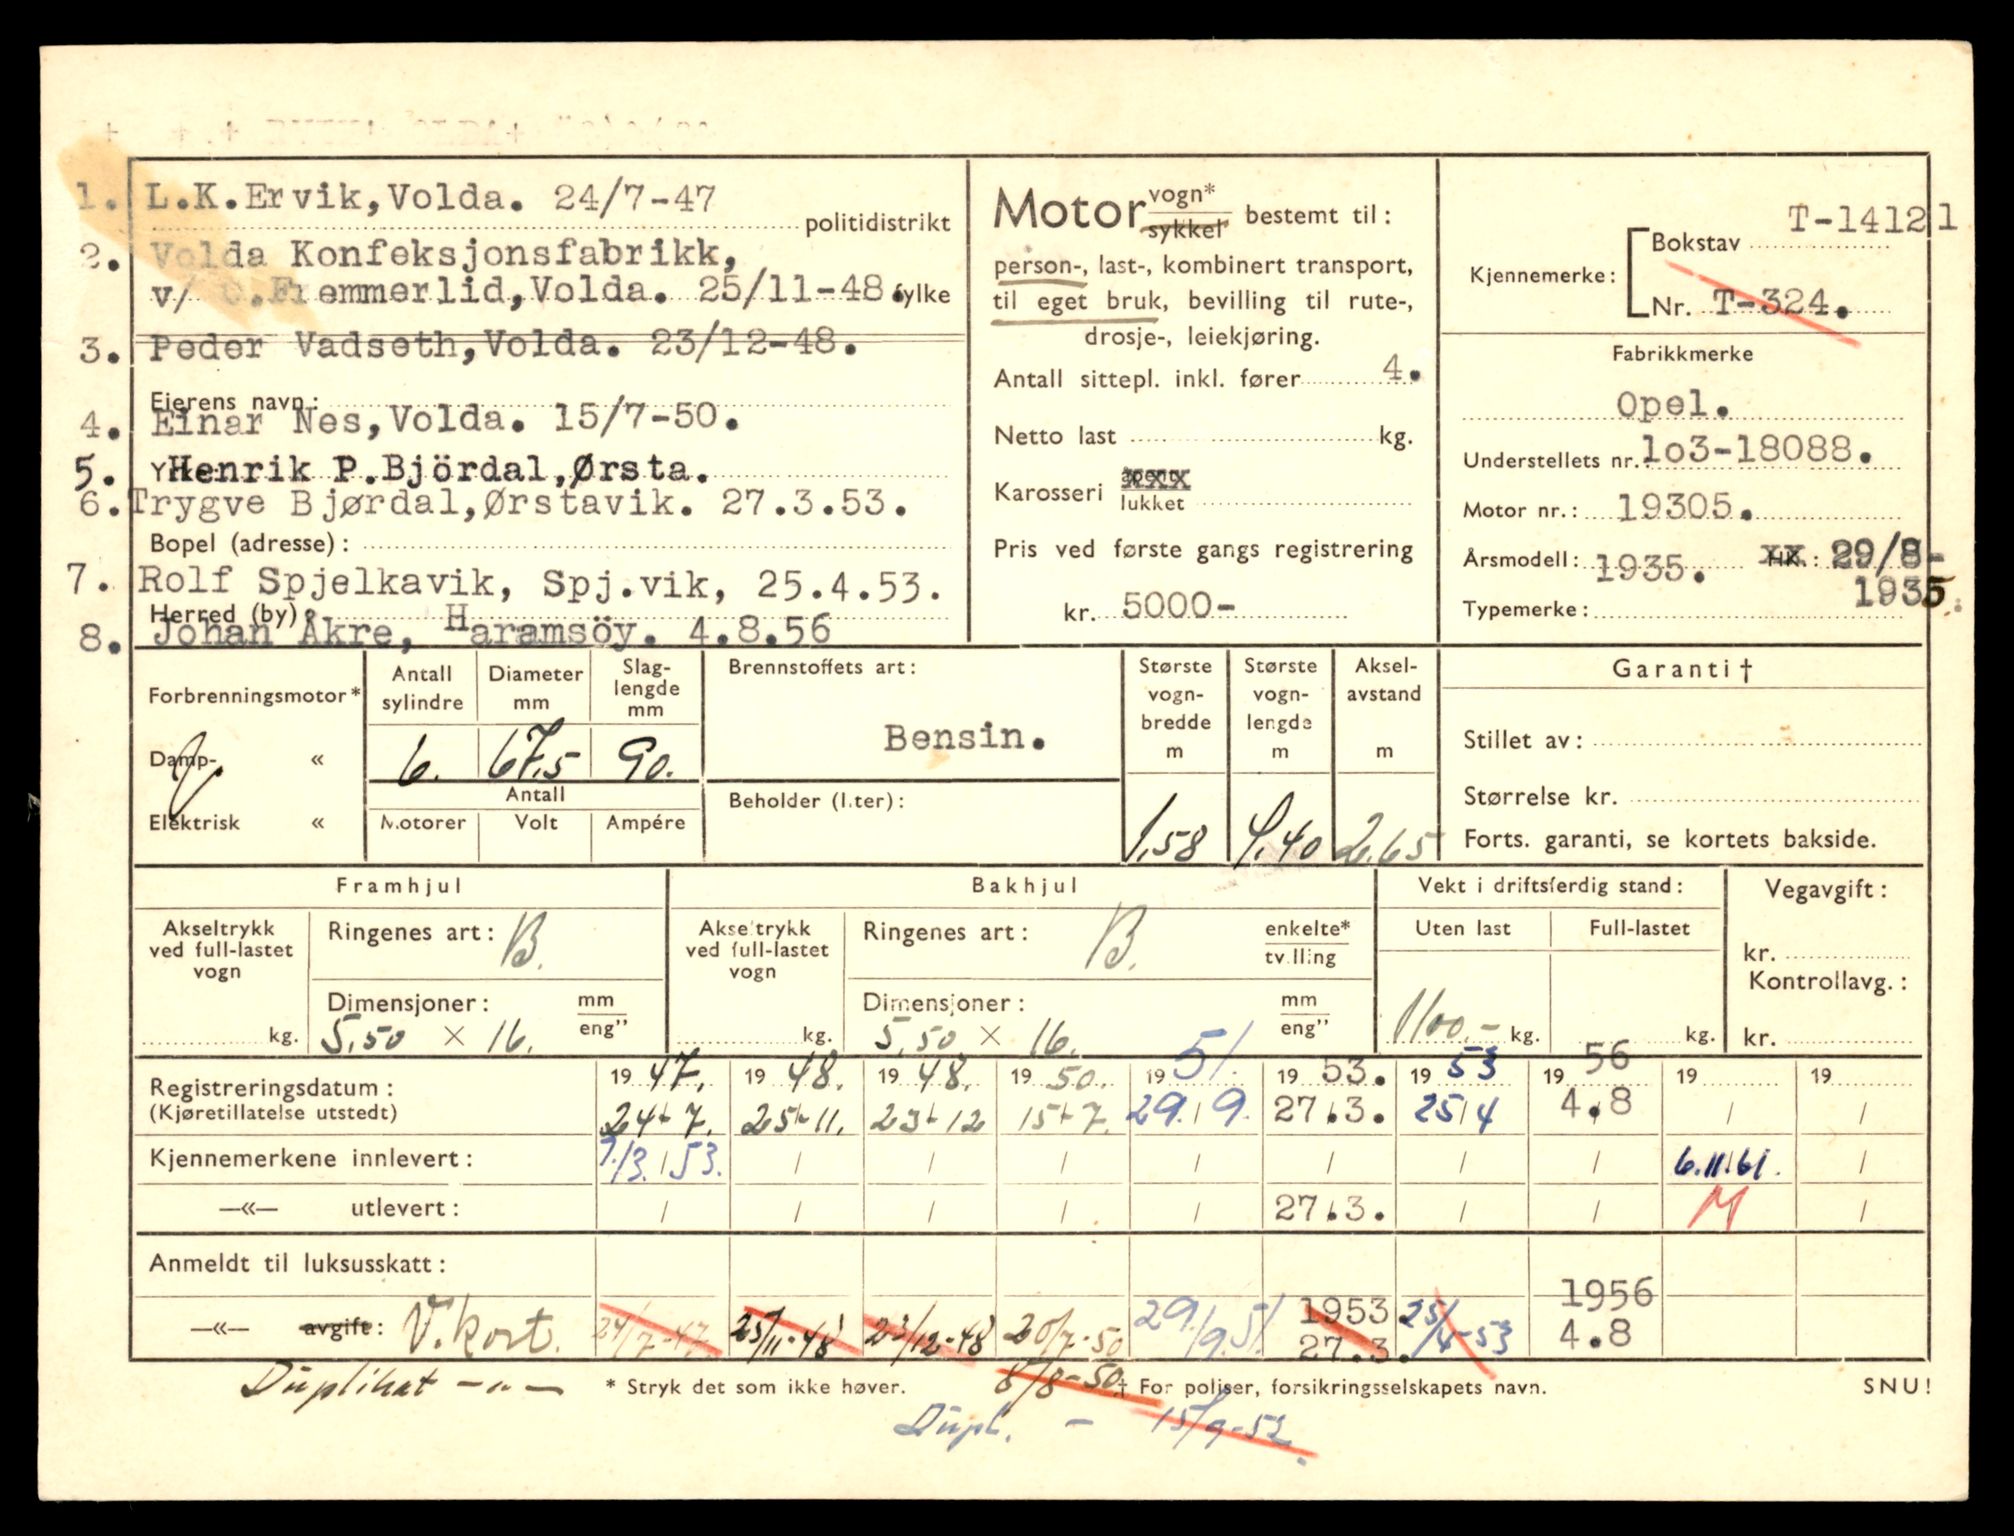 1. L.K.Ervik,Volda. 24/7-47
politidistrikt
2. Volda Konfeksjonsfabrikk,
v/ O.Fremmerlid,Volda. 25/11-48.
fylke
3. Peder Vadseth,Volda. 23/12-48.
Eierens navn:
4. Einar Nes,Volda. 15/7-50.
5. Henrik P.Björdal,Ørsta.
6. Trygve Bjørdal,Ørstavik. 27.3.53.
Bopel (adresse):
7. Rolf Spjelkavik, Spj.vik, 25.4.53.
Herred (by):
8. Johan Åkre, Haramsöy. 4.8.56
Motor vogn* sykkel bestemt til:
person-, last-, kombinert transport,
til eget bruk, bevilling til rute-,
drosje-, leiekjøring.
Antall sittepl. inkl. fører 4.
Netto last kg.
Karosseri åpent xxx
lukket
Pris ved første gangs registrering
kr. 5000-
T-14121
Kjennemerke: Bokstav
Nr. T-324.
Fabrikkmerke
Opel.
Understellets nr. 1o3-18088.
Motor nr.: 19305.
Årsmodell: 1935. HK.: 29/8-
1935.
Typemerke:
Forbrenningsmotor*
Damp- «
Elektrisk «
Antall sylindre
Diameter mm
Slag-lengde mm
6. 67,5 90.
Antall
Motorer Volt Ampére
Brennstoffets art:
Bensin.
Beholder (liter):
Største vogn-bredde m
Største vogn-lengde m
Aksel-avstand m
1,58 4,40 2,65
Garanti †
Stillet av:
Størrelse kr.
Forts. garanti, se kortets bakside.
Framhjul
Akseltrykk ved full-lastet vogn
kg.
Ringenes art: B.
Dimensjoner: mm eng"
5,50 × 16.
Bakhjul
Akseltrykk ved full-lastet vogn
kg.
Ringenes art: B. enkelte* tvilling
Dimensjoner: mm eng"
5,50 × 16.
Vekt i driftsferdig stand:
Uten last Full-lastet
1100.- kg. kg.
Vegavgift:
kr.
Kontrollavg.:
kr.
Registreringsdatum: 19 47. 19 48. 19 48. 19 50. 19 51. 19 53. 19 53 19 56 19 19
(Kjøretillatelse utstedt) 24/7. 25/11. 23/12 15/7. 29./9. 27.3. 25/4 4.8 / /
Kjennemerkene innlevert: 7./3. 53. / / / / / / / 6.11.61. /
—«— utlevert: / / / / / 27.3. / / M /
Anmeldt til luksusskatt:
—«— avgift: V.kort. 24/7-47. 25/11-48 23/12-48 20/7-50 29./9.51. 1953 27.3. 25/4-53 1956 4.8
Duplikat —"— 8/8-50.
* Stryk det som ikke høver.
† For poliser, forsikringsselskapets navn.
SNU!
Dupl. - 15/9-52.